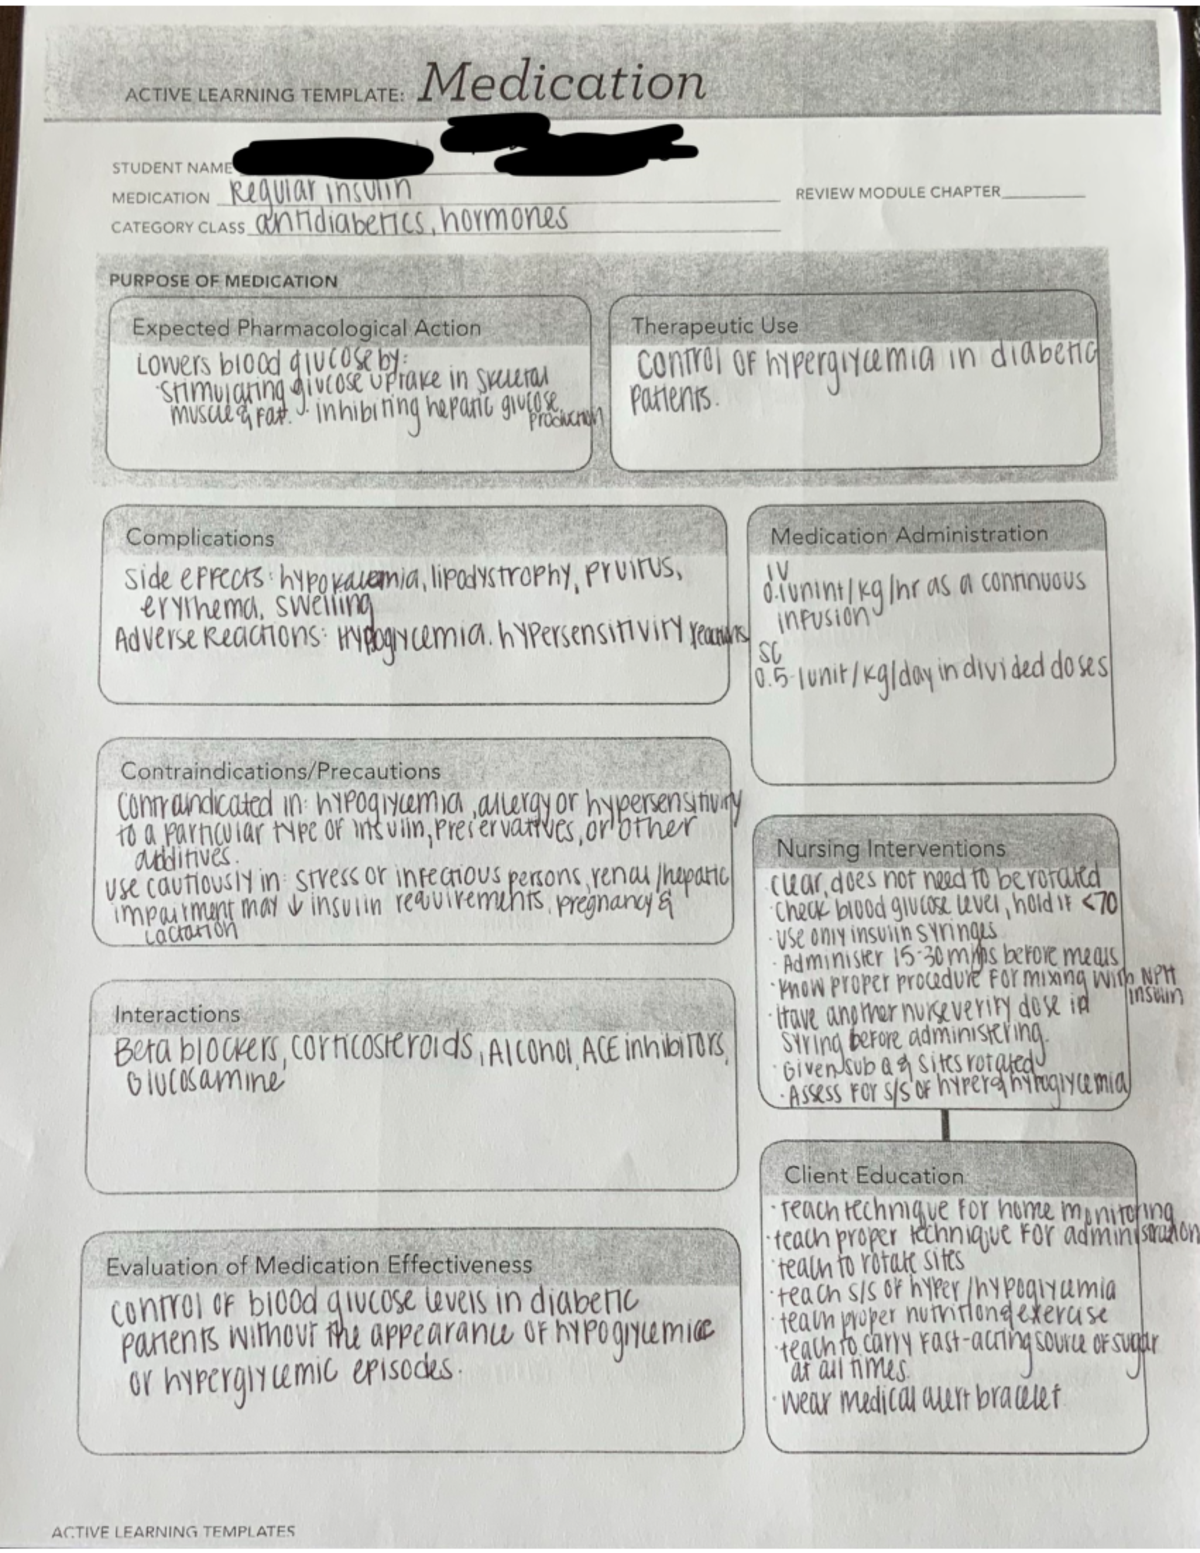 ACTIVE LEARNING TEMPLATE: Medication
STUDENT NAME
MEDICATION Regular insulin
REVIEW MODULE CHAPTER
CATEGORY CLASS antidiabetics, hormones
PURPOSE OF MEDICATION
Expected Pharmacological Action
Lowers blood glucose by:
·stimulating glucose uptake in skeletal
muscle & fat. · inhibiting hepatic glucose
production
Therapeutic Use
control of hyperglycemia in diabetic
patients.
Complications
Side effects: hypokalemia, lipodystrophy, pruitus,
erythema, swelling
Adverse Reactions: Hypoglycemia. hypersensitivity reactions
Medication Administration
IV
0.1unint/kg/hr as a continuous
infusion
SC
0.5-1unit/kg/day in divided doses
Contraindications/Precautions
Contraindicated in: hypoglycemia, allergy or hypersensitivity
to a particular type of insulin, preservatives, or other
additives.
use cautiously in: stress or infectious persons, renal/hepatic
impairment may ↓ insulin requirements, pregnancy &
Lactation
Nursing Interventions
·clear, does not need to be rotated
·check blood glucose level, hold if <70
·use only insulin syringes
·Administer 15-30 mins before meals
·know proper procedure for mixing with NPH
insulin
·Have another nurse verify dose in
syring before administering.
·Given sub q & sites rotated
·Assess for s/s of hyper & hypoglycemia
Interactions
Beta blockers, corticosteroids, Alcohol, ACE inhibitors,
Glucosamine
Client Education
·teach technique for home monitoring
·teach proper technique for administration
·teach to rotate sites
·teach s/s of hyper/hypoglycemia
·teach proper nutrition & exercise
·teach to carry fast-acting source of sugar
at all times
·wear medical alert bracelet
Evaluation of Medication Effectiveness
control of blood glucose levels in diabetic
patients without the appearance of hypoglycemic
or hyperglycemic episodes.
ACTIVE LEARNING TEMPLATES